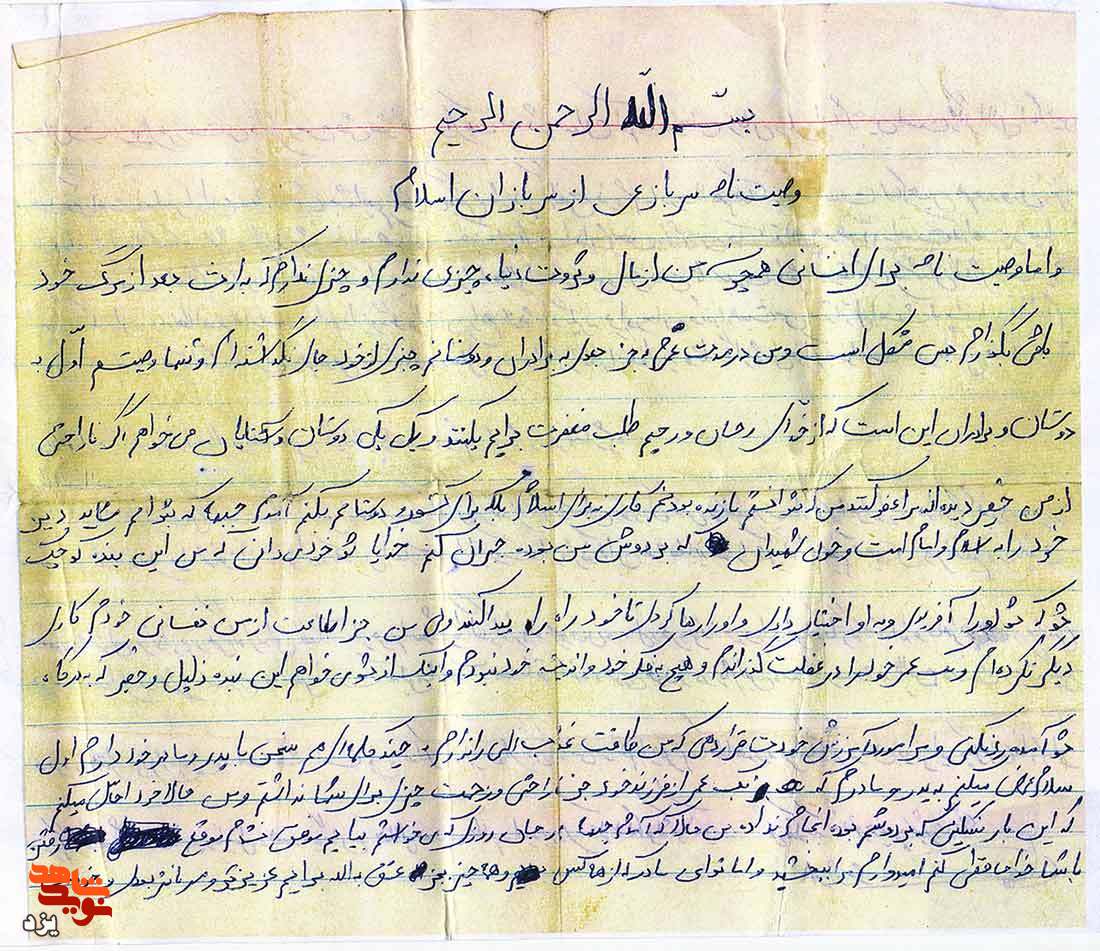 بسم الله الرحمن الرحیم
وصیت نامه سربازی از سربازان اسلام
و اما وصیت نامه برای انسانی همچون من از مال و ثروت دنیا چیزی ندارم و چیزی ندارم که به ارث بعد از مرگ خود
باقی بگذارم مشکل است و من در مدت عمرم به جز به برادران و دوستانم چیزی از خود جای نگذاشته ام و تنها وصیتم اول به
دوستان و برادران این است که از خدای رحمان و رحیم طلب مغفرت برایم بکنند و یک یک دوستان و آشنایان می خواهم اگر ناراحتی
از من حقیر دیده اند مرا عفو کنند من که نتوانستم تا زنده بودم کاری برای اسلام بلکه برای کشور و دوستانم بکنم آمدم جبهه که بتوانم شاید دین
خود را به اسلام و امام امت و خون شهیدان که بر دوش من بوده جبران کنم خدایا تو خود می دانی که من این بنده کوچک
تو که تو او را آفریدی و به او اختیار دادی و او را رها کردی تا خود راه را پیدا کند ولی من جز اطاعت از نفسانی خودم کاری
دیگر نکرده ام و یک عمر خود را در غفلت گذراندم و هیچ به فکر خود و اندیشه خود نبودم و اینک از تو می خواهم این بنده ذلیل و حقیر که به درگاه
تو آمده رد نکنی و مرا مورد آمرزش خودت قرار دهی که من طاقت عذاب الهی را ندارم و چند کلمه ای هم سخن با پدر و مادر خود دارم اول
سلام عرض میکنم به پدر و مادرم که یک عمر از فرزند خود جز ناراحتی و زحمت چیزی برای شما نداشتم و من حالا خود اقرار میکنم
که این بار سنگین که بر دوشم بوده انجام نداده من حالا که آمدم جبهه در همان روزی که می خواستم بیایم موقع وقتی
با شما خداحافظی کنم امیدوارم مرا ببخشید و اما تو ای مادر که از هر کس و هر چیز بجز عشق به الله برایم عزیزتر و مهربانتر بودی
نوید شاهد
یزد